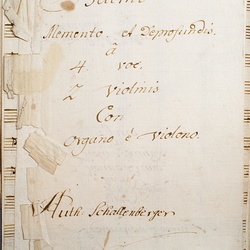 Memento. et Deprofundis.
â
4. voc.
2 Violinis
Con
organo è violono.
Auth. Schallenberger